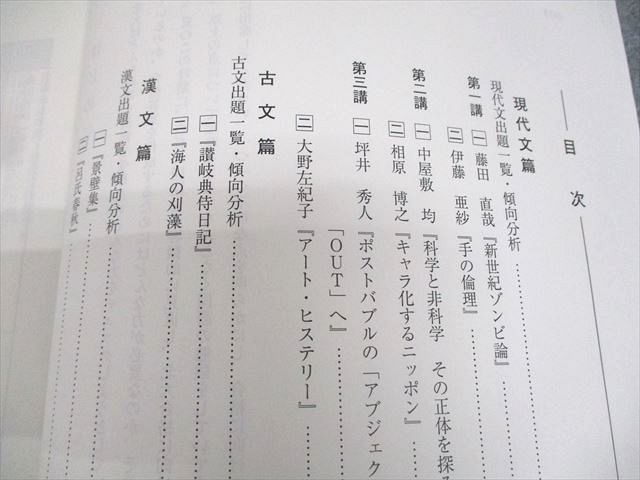 目次
現代文篇
現代文出題一覧・傾向分析
第一講 一 藤田 直哉『新世紀ゾンビ論』
二 伊藤 亜紗『手の倫理』
第二講 一 中屋敷 均『科学と非科学 その正体を探
二 相原 博之『キャラ化するニッポン』
第三講 一 坪井 秀人『ポストバブルの「アブジェク
「OUT」へ』
二 大野左紀子『アート・ヒステリー』
古文篇
古文出題一覧・傾向分析
一『讃岐典侍日記』
二『海人の刈藻』
漢文篇
漢文出題一覧・傾向分析
一『景壁集』
二『呂氏春秋』